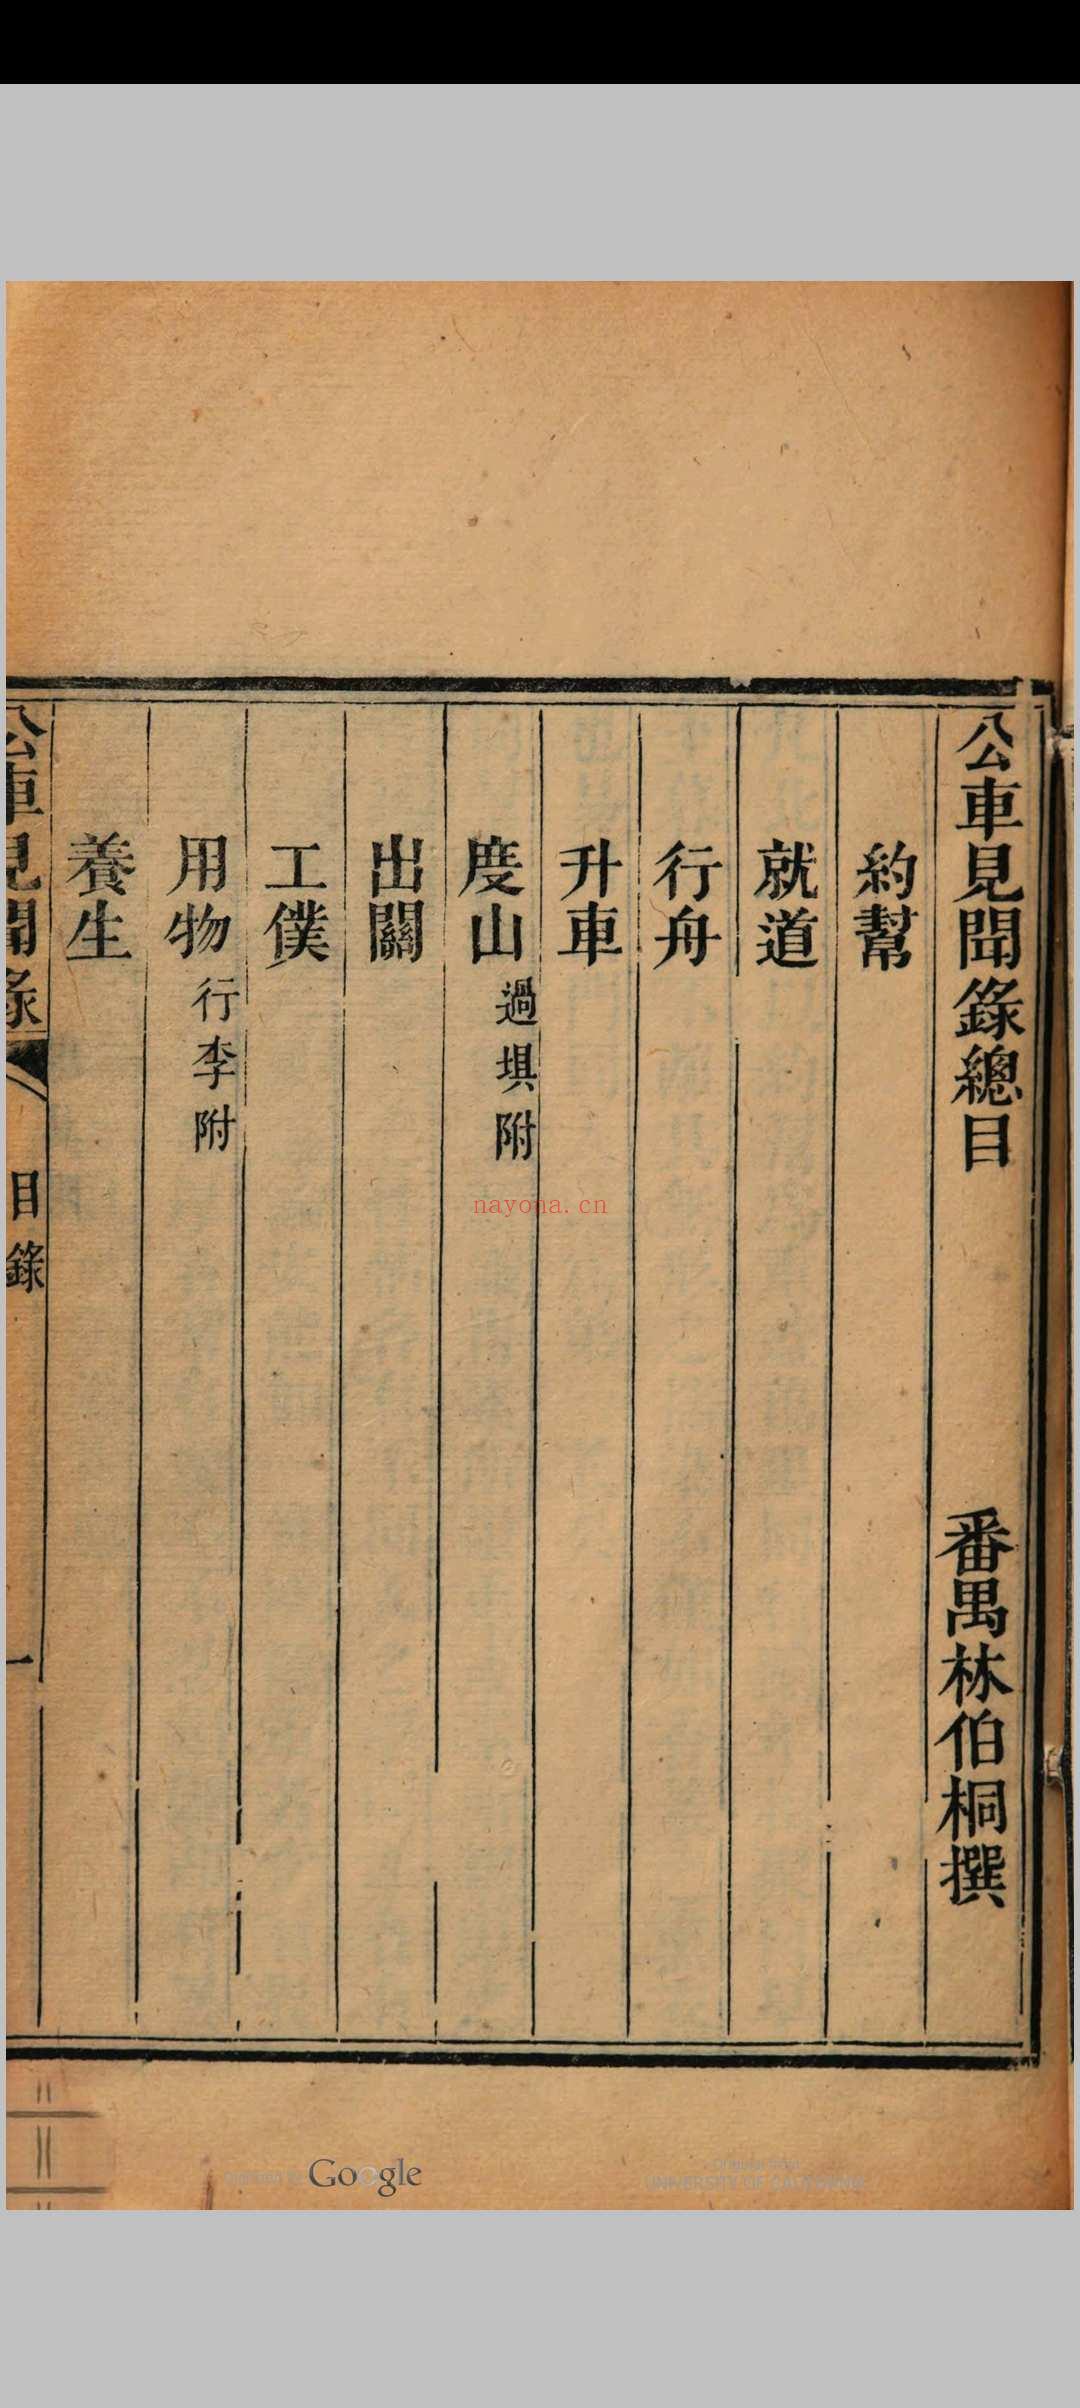 公車見聞錄總目
番禺林伯桐撰
約幫
就道
行舟
升車
度山過埧附
出關
工僕
用物行李附
養生
公車見聞錄
目錄
一
nayona.cn
Google
Original from
UNIVERSITY OF CALIFORNIA